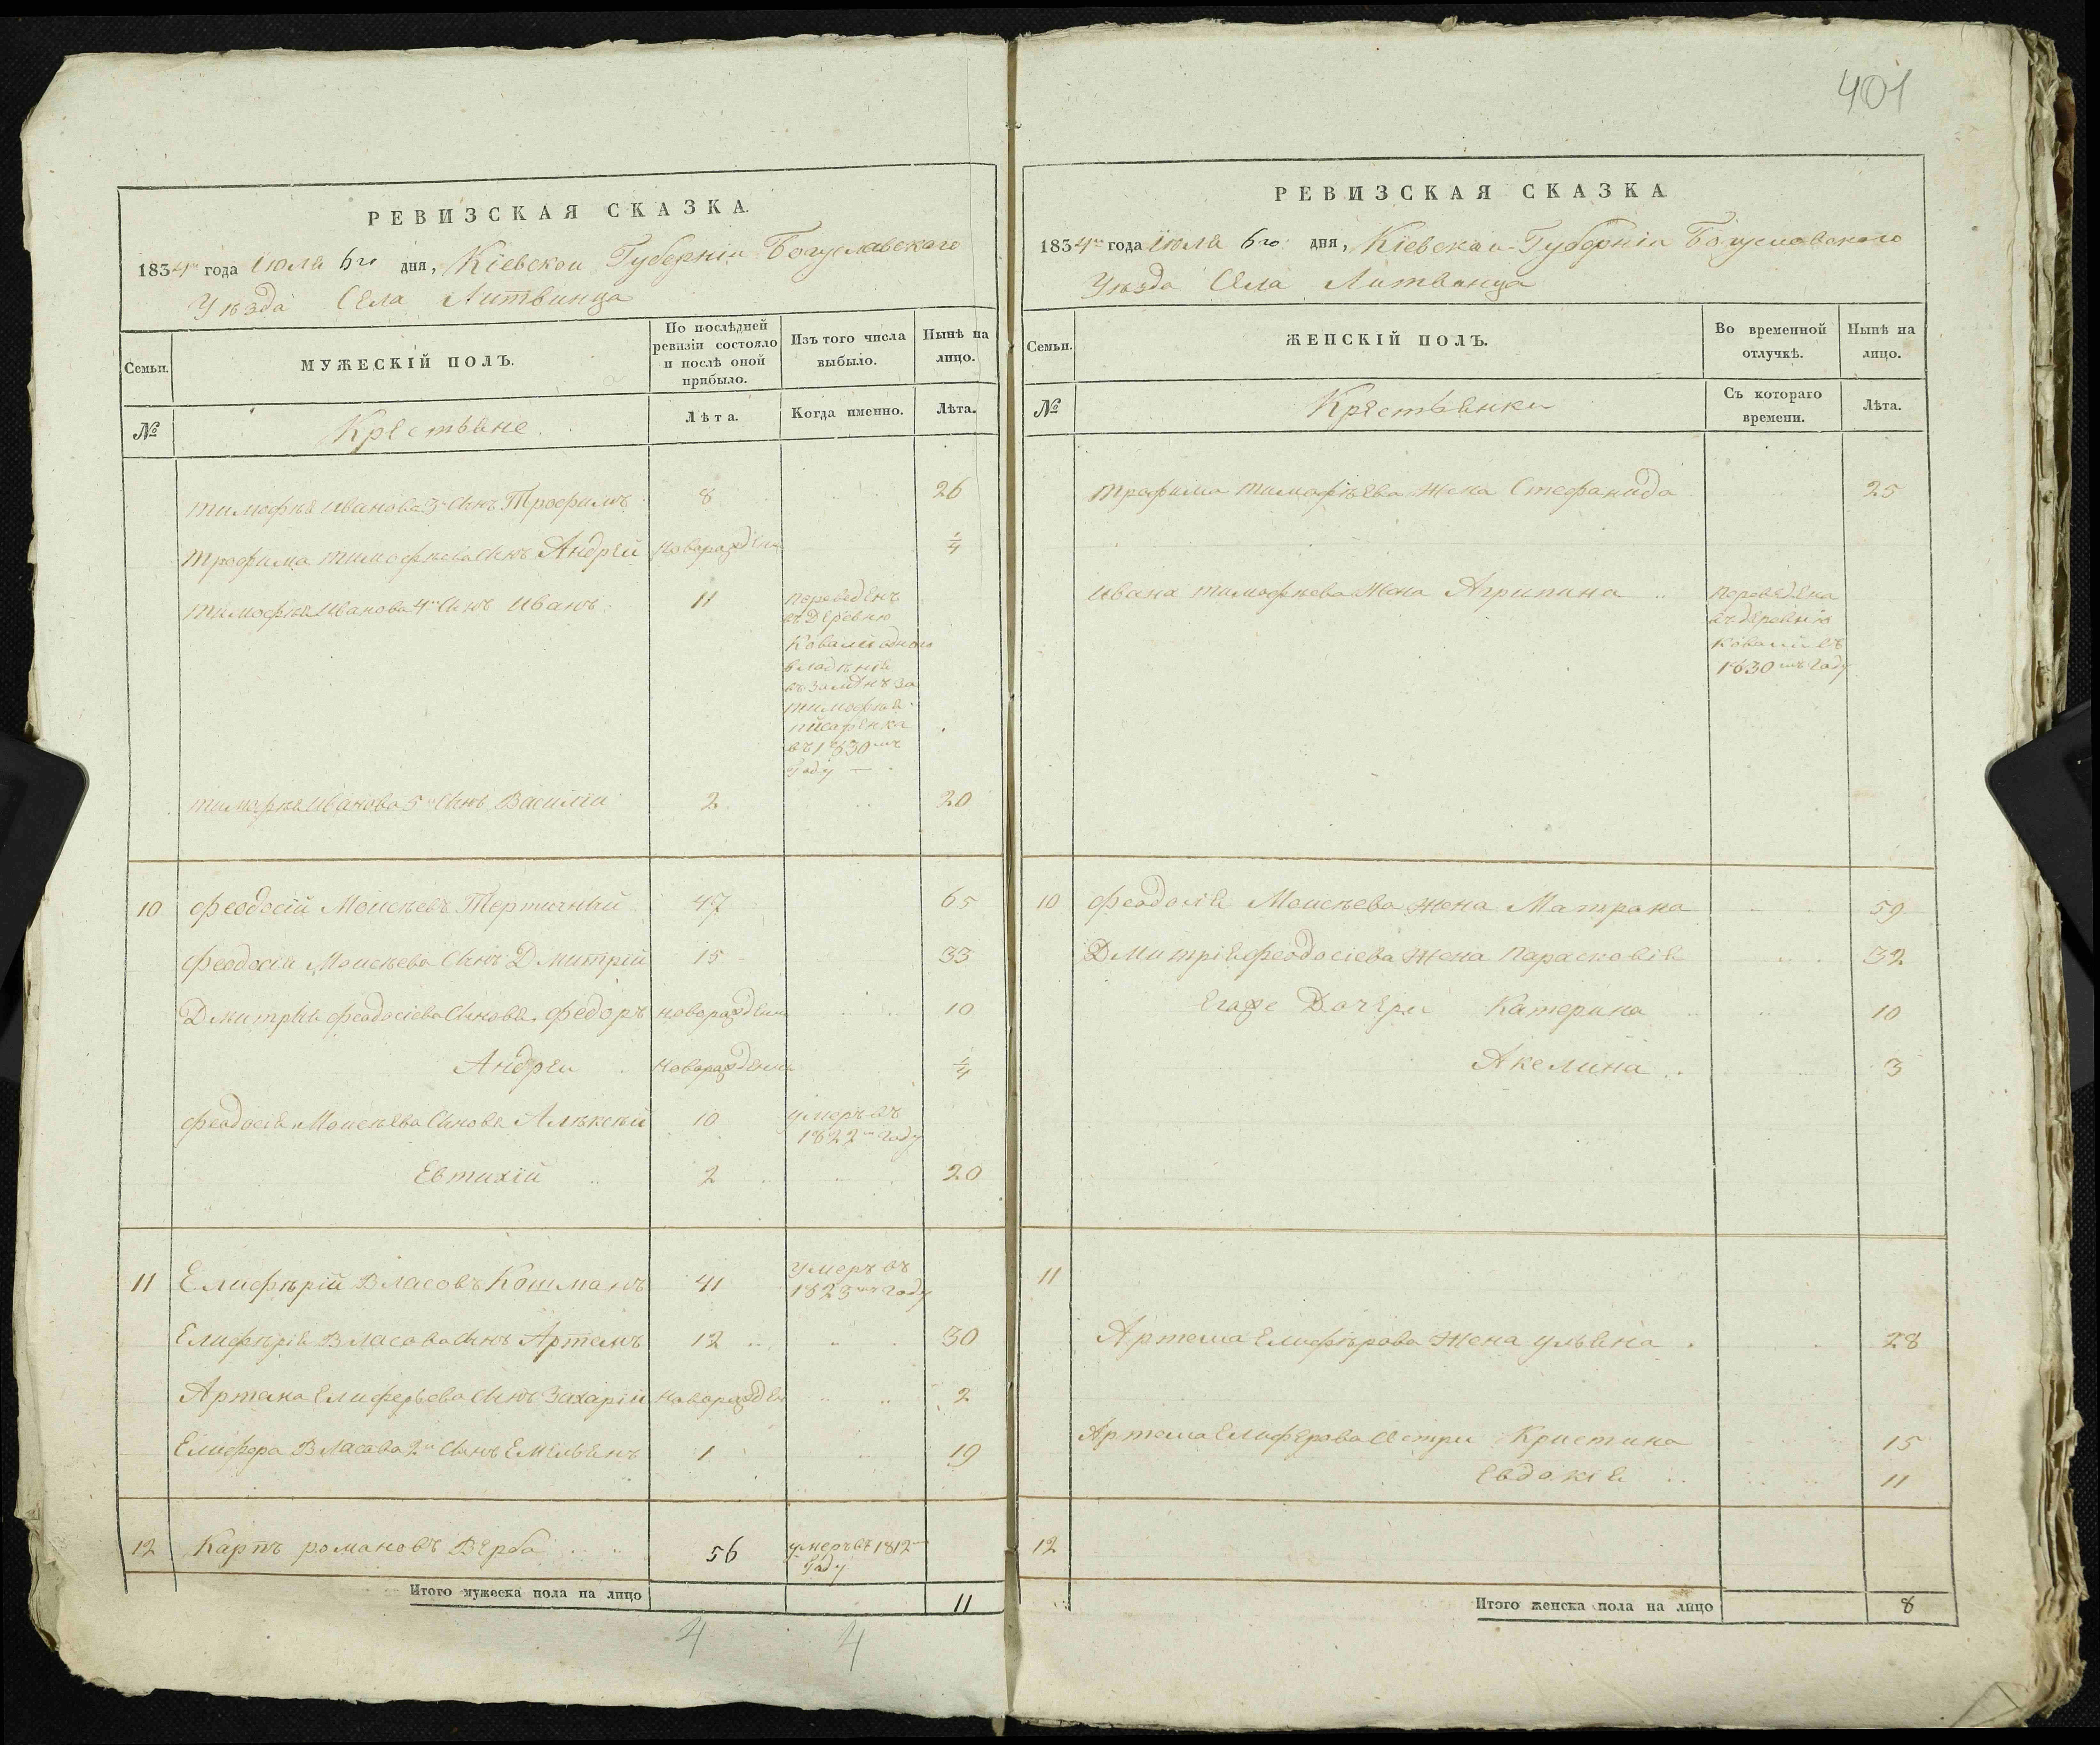 РЕВИЗСКАЯ СКАЗКА.
1834го года Июля 6го дня, Кіевской Губерніи Богуславскаго
Уѣзда Села Литвинца
Семьи.
МУЖЕСКІЙ ПОЛЪ.
По послѣдней ревизіи состояло и послѣ оной прибыло.
Изъ того числа выбыло.
Нынѣ на лицо.
№
Крестьяне.
Лѣта.
Когда именно.
Лѣта.
тимофѣя Иванова 3й Сынъ Трофимъ 8 26
трофима тимофѣева Сынъ Андрей новорожденъ 1/4
тимофѣя Иванова 4й Сынъ Иванъ 11 переведенъ
въ деревню
Ковали одного
владѣнія
въ замѣнъ за
тимофѣя
писаренка
въ 1830мъ
Году
тимофѣя Иванова 5й Сынъ Василій 2 20
10 феодосій Моисѣевъ Тертичный 47 65
феодосія Моисѣева Сынъ Дмитрій 15 33
Дмитрія феодосіева Сыновья федоръ новорожденъ 10
Андрей новорожденъ 1/4
феодосія Моисѣева Сыновья Алѣксѣй 10 умеръ въ
1822мъ Году
Евтихій 2 20
11 Елифѣрій Власовъ Кошманъ 41 умеръ въ
1823мъ Году
Елифѣрія Власова Сынъ Артемъ 12 30
Артема Елиферьева Сынъ Захарій новорожден 2
Елифера Власова 2й Сынъ Емельянъ 1 19
12 Карпъ романовъ Верба 56 умеръ въ 1812
Году
Итого мужеска пола на лицо 11
4 4
401
РЕВИЗСКАЯ СКАЗКА
1834го года Июля 6го дня, Кіевской Губерніи Богуславскаго
Уѣзда Села Литвинца
Семьи.
ЖЕНСКІЙ ПОЛЪ.
Во временной отлучкѣ.
Нынѣ на лицо.
№
Крестьянки
Съ котораго времени.
Лѣта.
трофима тимофѣева жена Стефанида 25
ивана тимофѣева жена Агрипина переведена
въ деревню
Ковали въ
1830мъ Году
10 феодосія Моисѣева жена Матрона 59
Дмитрія феодосіева жена Парасковія 32
Егоже Дочери Катерина 10
Акелина 3
11
Артема Елифѣрова жена ульяна 28
Артема Елиферова Сестри Кристина 15
Евдокія 11
12
Итого женска пола на лицо 8